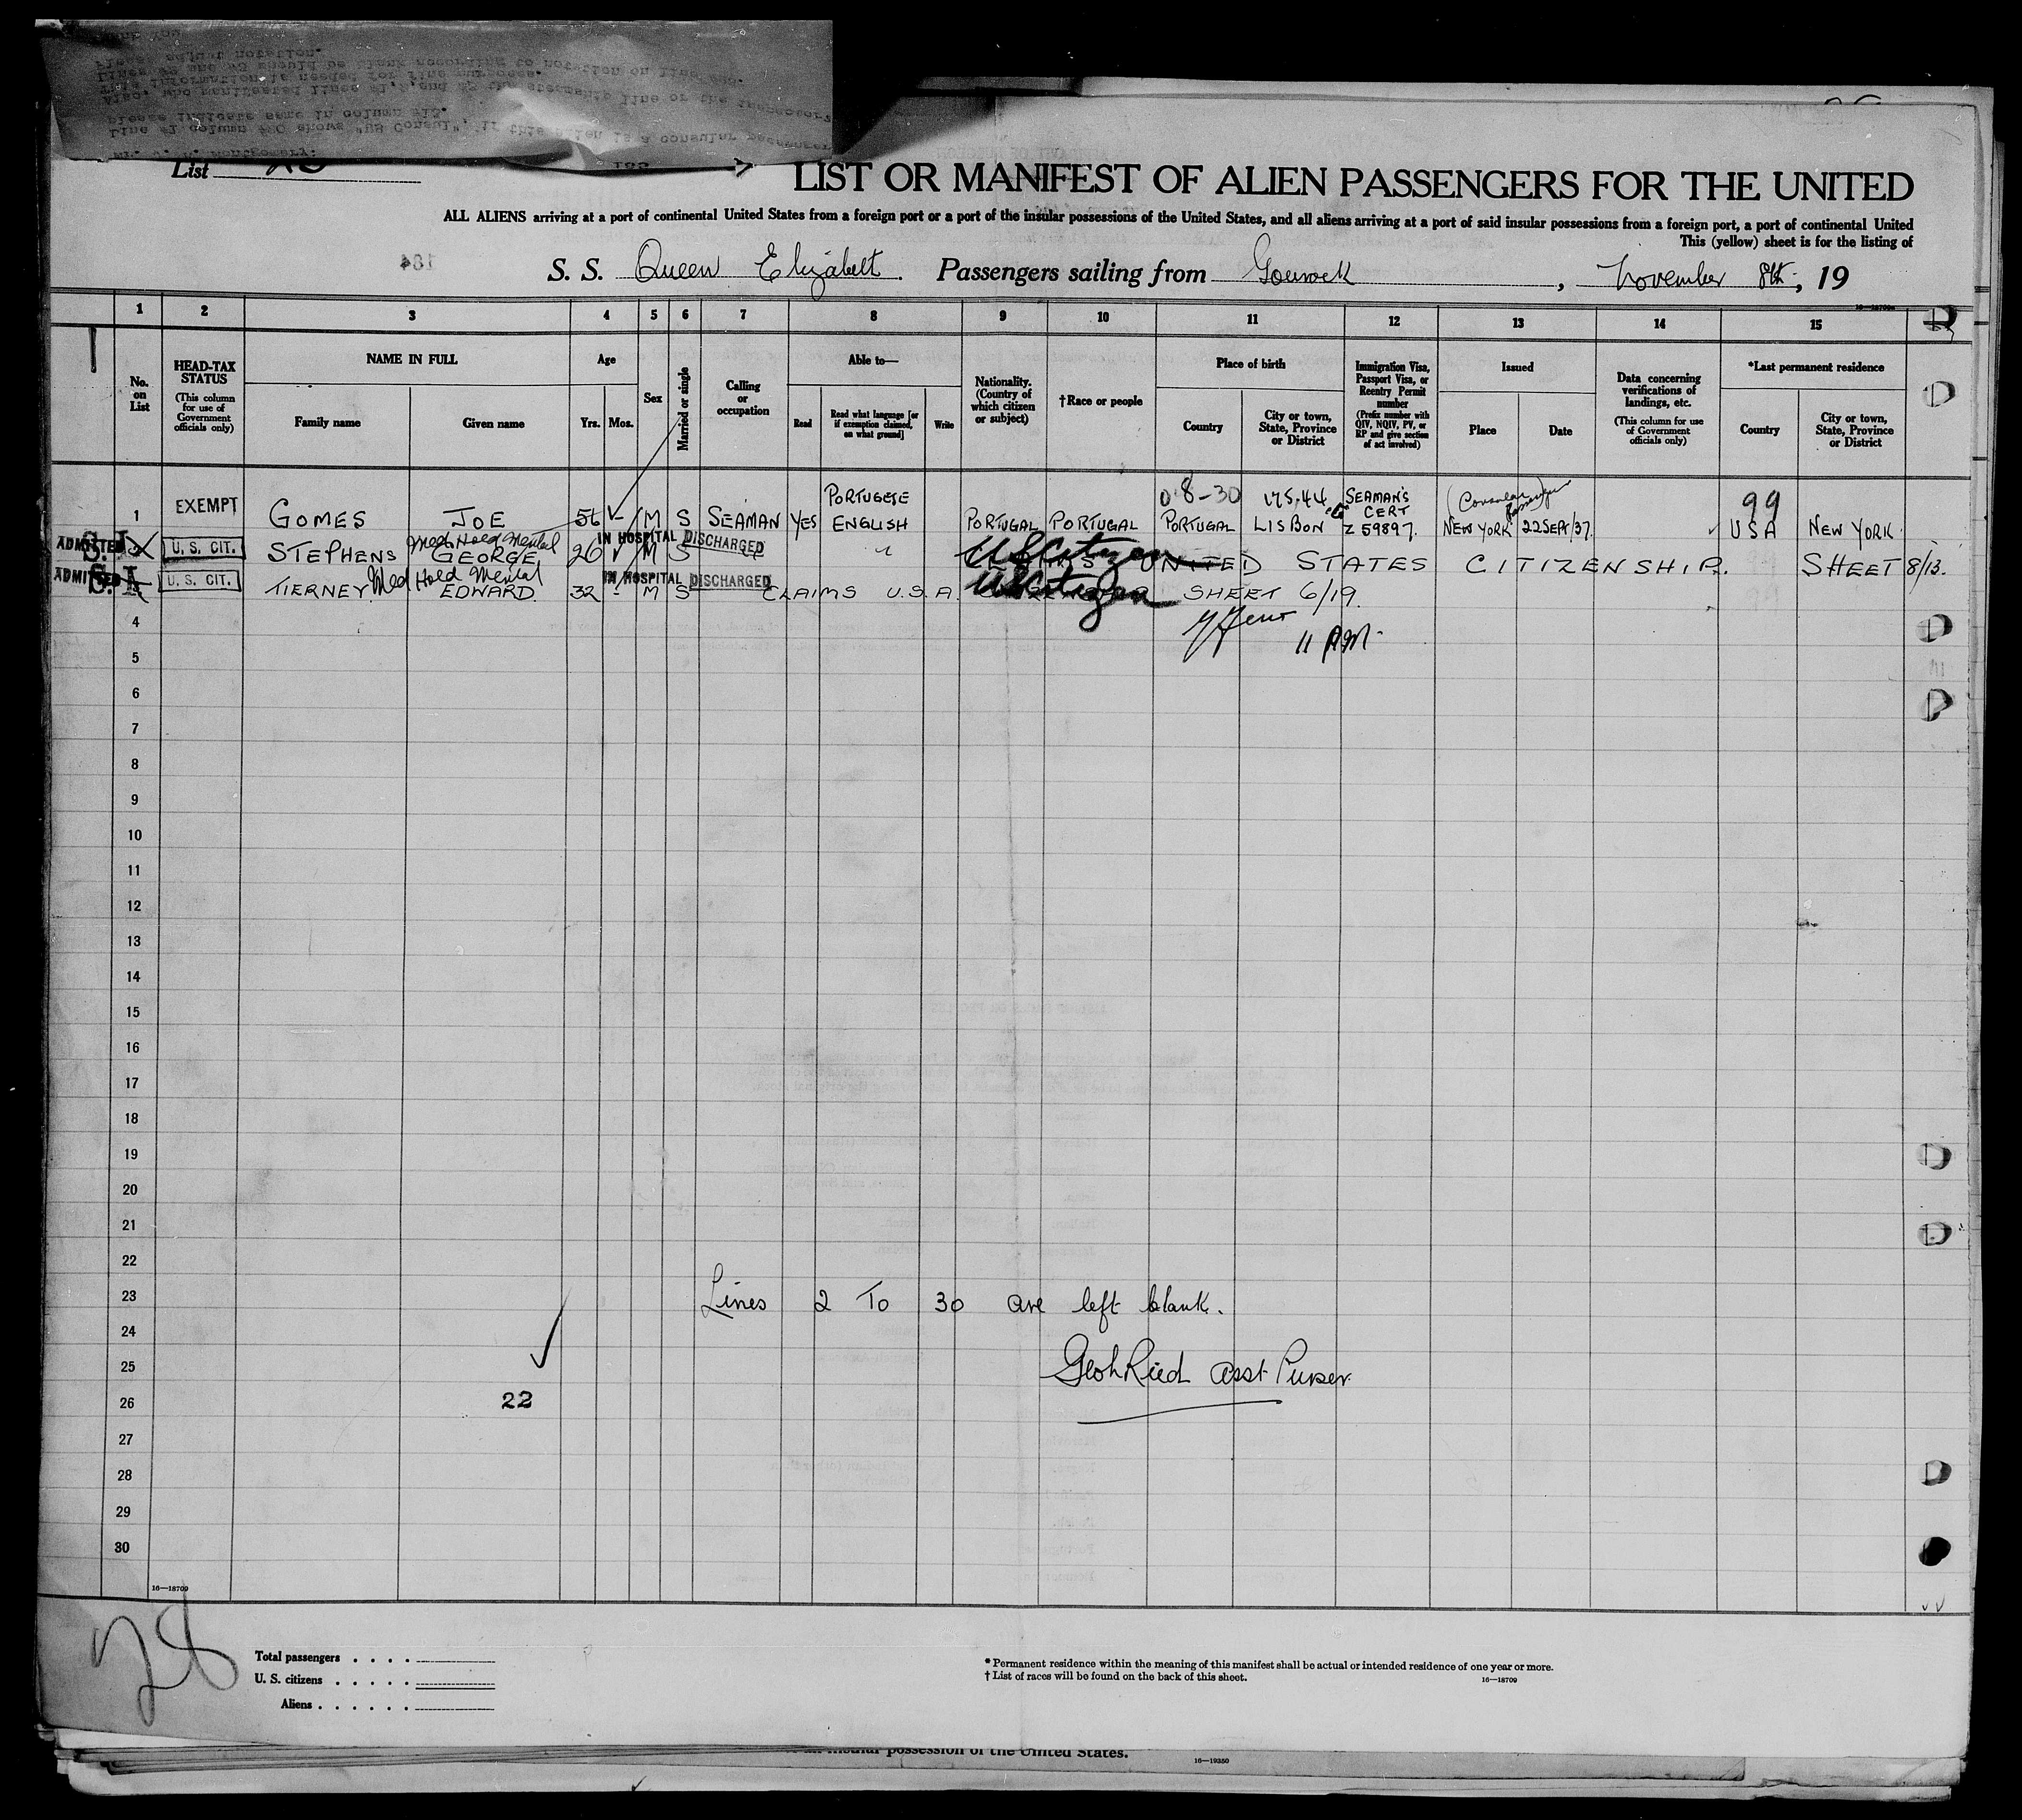 List
LIST OR MANIFEST OF ALIEN PASSENGERS FOR THE UNITED
ALL ALIENS arriving at a port of continental United States from a foreign port or a port of the insular possessions of the United States, and all aliens arriving at a port of said insular possessions from a foreign port, a port of continental United
This (yellow) sheet is for the listing of
184
S. S. Queen Elizabeth. Passengers sailing from Gourock, November 8th, 19
16—18709
1 2 3 4 5 6 7 8 9 10 11 12 13 14 15
No. on List
HEAD-TAX STATUS
(This column for use of Government officials only)
NAME IN FULL
Family name
Given name
Age
Yrs. Mos.
Sex
Married or single
Calling or occupation
Able to—
Read
Read what language [or if exemption claimed, on what ground]
Write
Nationality. (Country of which citizen or subject)
†Race or people
Place of birth
Country
City or town, State, Province or District
Immigration Visa, Passport Visa, or Reentry Permit number
(Prefix number with QIV, NQIV, PV, or RP and give section of act involved)
Issued
Place
Date
Data concerning verifications of landings, etc.
(This column for use of Government officials only)
*Last permanent residence
Country
City or town, State, Province or District
1 EXEMPT GOMES JOE 56 - M S SEAMAN YES PORTUGESE ENGLISH PORTUGAL PORTUGAL PORTUGAL LISBON SEAMAN'S CERT Z 59897. NEW YORK 22 SEPT/37. 99 USA NEW YORK
ADMITTED S.I. U. S. CIT. STEPHENS GEORGE Med Hold Mental 26 M S IN HOSPITAL DISCHARGED US Citizen UNITED STATES CITIZENSHIP. SHEET 8/13.
ADMITTED S.I. U. S. CIT. TIERNEY EDWARD Med Hold Mental 32 - M S IN HOSPITAL DISCHARGED CLAIMS U.S.A. US Citizen SHEET 6/19.
4 11 AM
5
6
7
8
9
10
11
12
13
14
15
16
17
18
19
20
21
22
23 Lines 2 To 30 are left blank.
24
25 Asst Purser
26 22
27
28
29
30
16—18709
28
Total passengers . . . .
U. S. citizens . . . . .
Aliens . . . . . .
* Permanent residence within the meaning of this manifest shall be actual or intended residence of one year or more.
† List of races will be found on the back of this sheet.
16—18709
insular possession of the United States.
16—19350